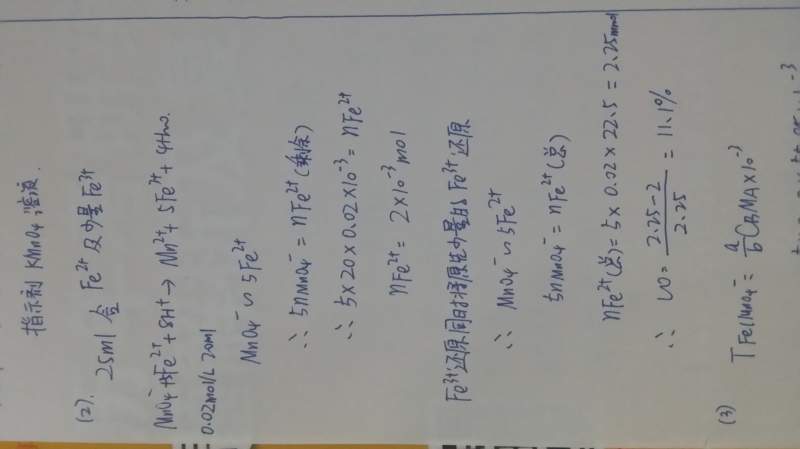 指示剂 KMnO4溶液.
(2). 25ml 含 Fe²⁺ 及少量 Fe³⁺
MnO4⁻+5Fe²⁺+8H⁺ → Mn²⁺+5Fe³⁺+4H2O.
0.02mol/L 20ml
MnO4⁻ ∽ 5Fe²⁺
∴ 5nMnO4⁻ = nFe²⁺(剩余)
∴ 5×20×0.02×10⁻³ = nFe²⁺
nFe²⁺ = 2×10⁻³ mol
Fe³⁺还原同时将原先少量的 Fe³⁺ 还原
∴ MnO4⁻ ∽ 5Fe²⁺
5nMnO4⁻ = nFe²⁺(总)
nFe²⁺(总) = 5×0.02×22.5 = 2.25mmol
∴ ω = \frac{2.25-2}{2.25} = 11.1%
(3) T Fe/MnO4⁻ = \frac{a}{b}CBMA×10⁻³